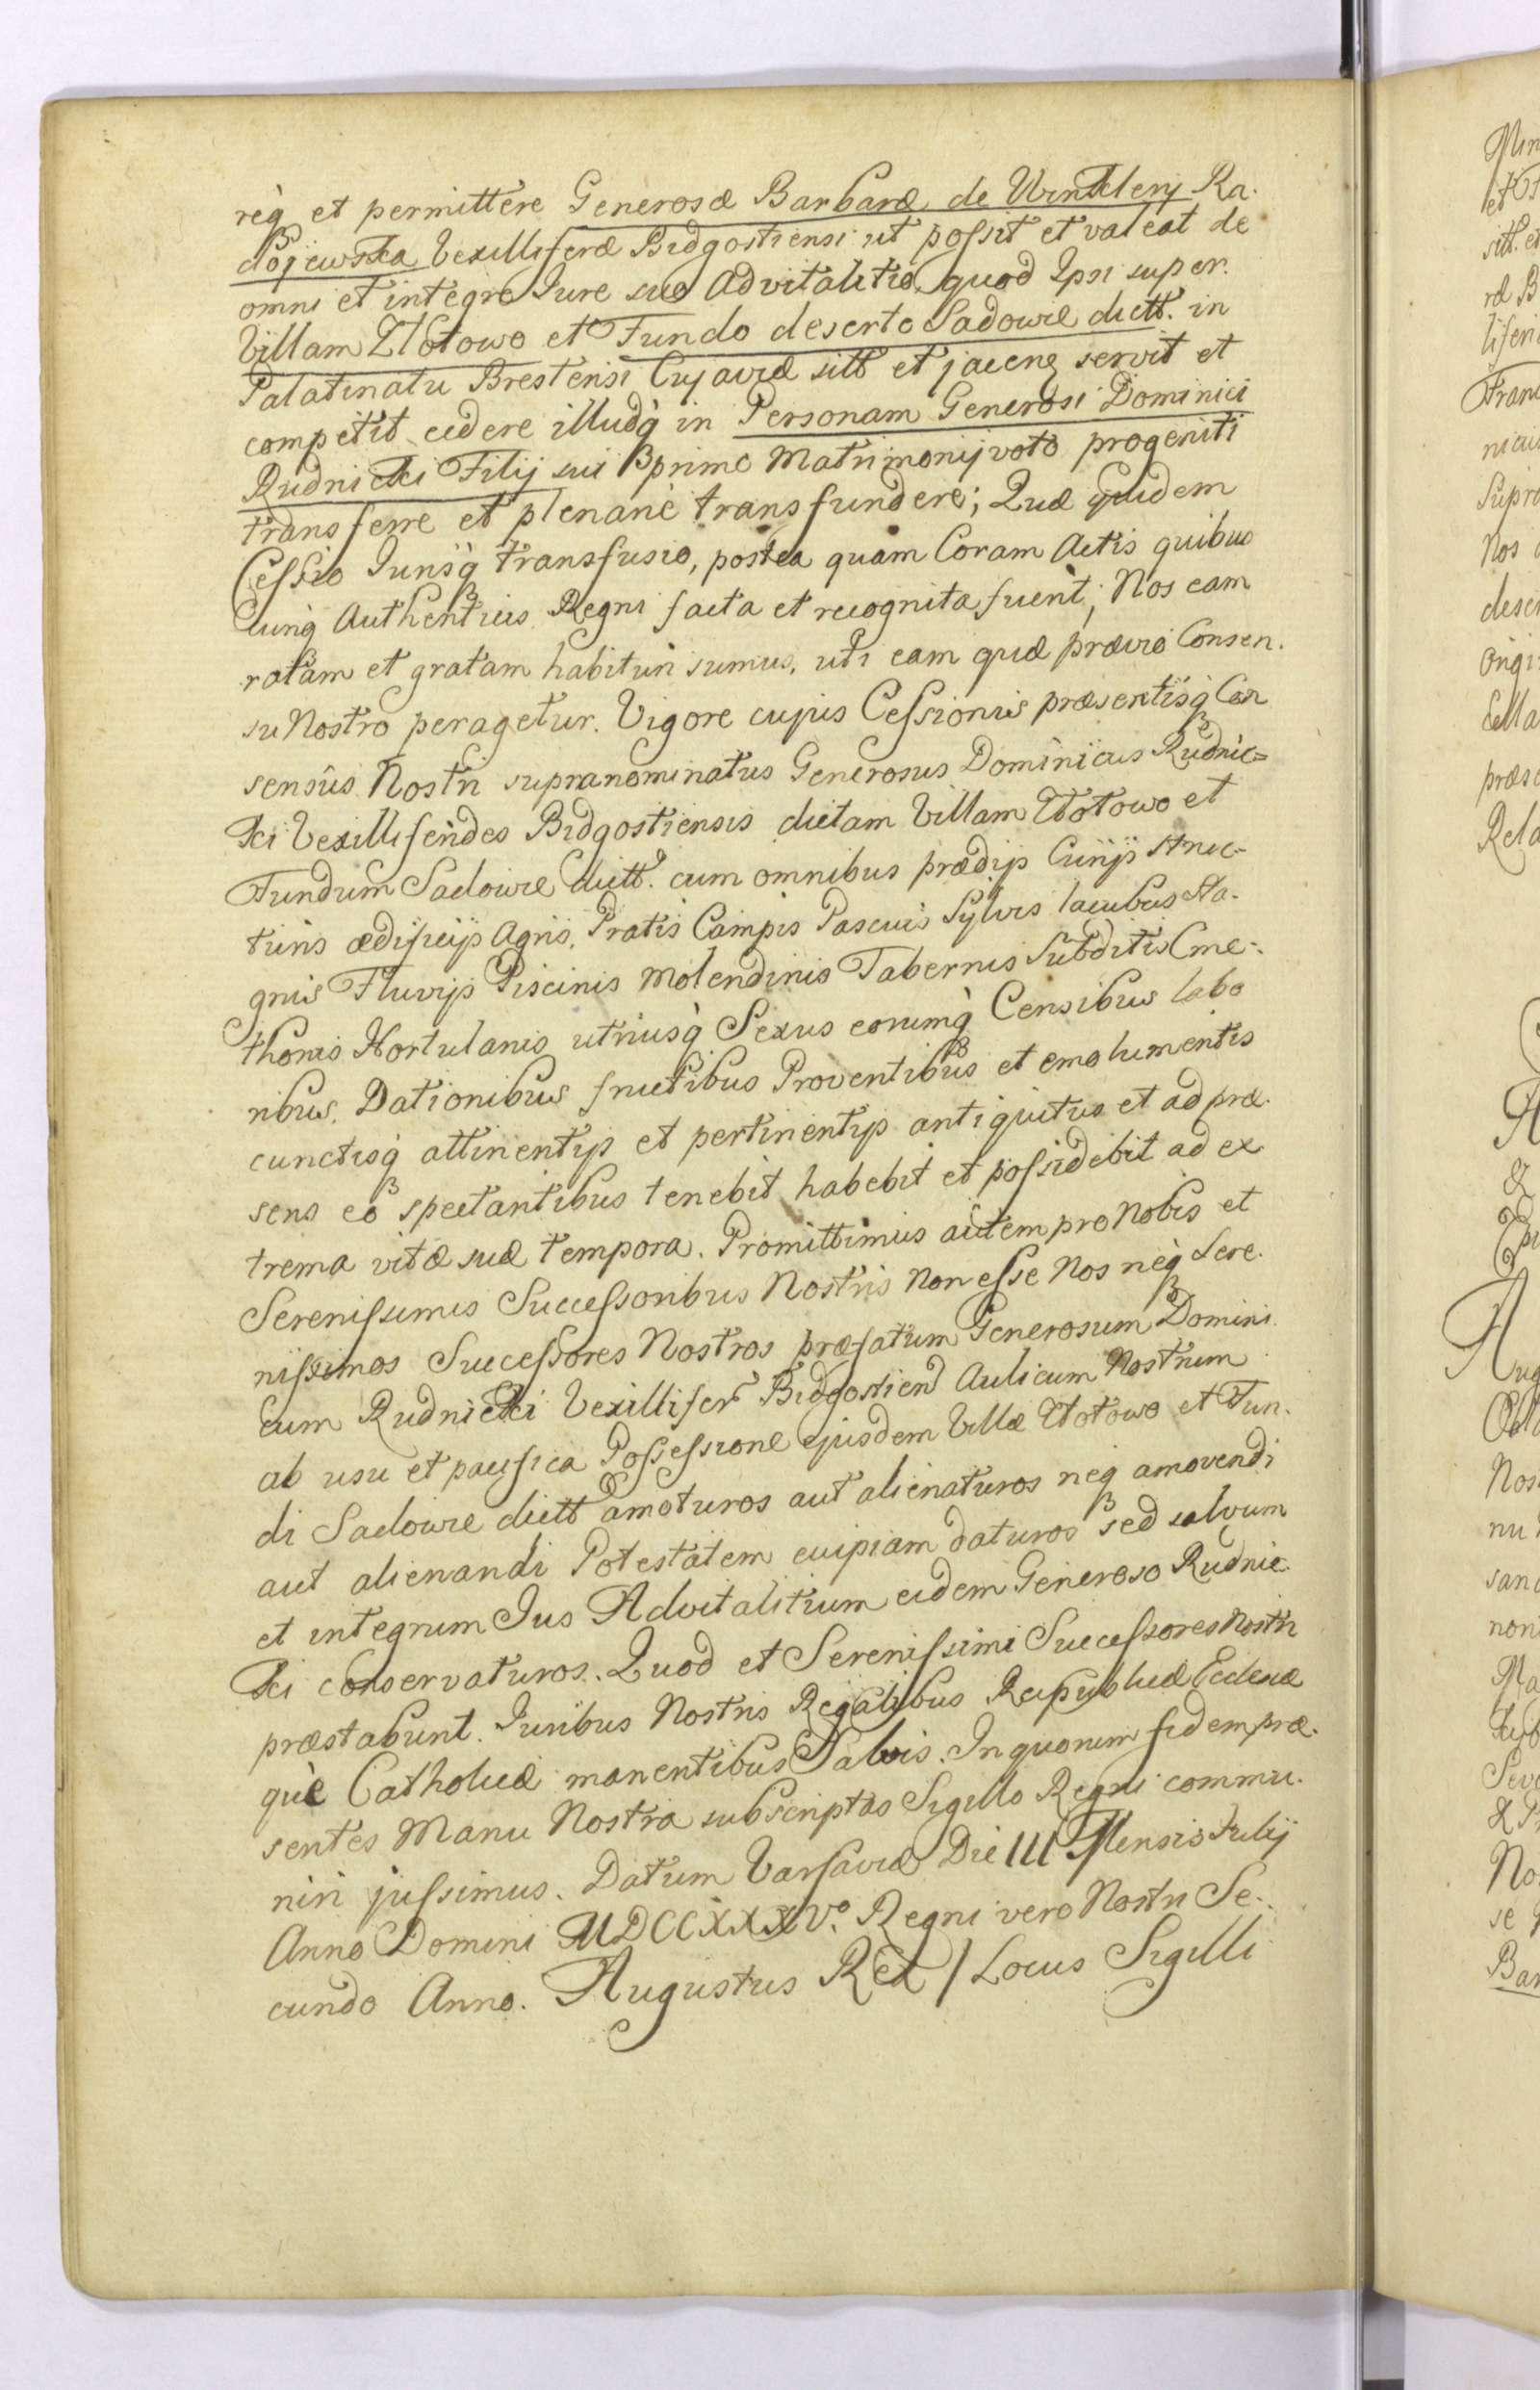 req́ et permittere Generosæ Barbaræ de Winklery Ra-
dojewska Vexilliferæ Bidgostiensi ut possit et valeat de
omni et integro Jure suo Advitalitio, quod Ipsi super
Villam Zlotowo et Fundo deserto Sadowie dictt. in
Palatinatu Brestensi Cujaviæ sitt et jacenq servit et
competit cedere illudq́ in Personam Generosi Dominici
Rudnicki Filij sui primo Matrimonij voto progeniti
transferre et plenariè transfundere; Quæ quidem
Cessio Jurisq́ transfusio, postea quam Coram Actis quibus
cunq́ Authenticis Regni facta et recognita fuerit, Nos eam
ratam et gratam habituri sumus, uti eam quæ prævio Consen-
su Nostro peragetur. Vigore cujus Cessionis præsentisq́ Con
sensûs Nostri supranominatus Generosus Dominicus Rudnic=
ki Vexilliferides Bidgostiensis dictam Villam Złotowo et
Fundum Sadowie dictt. cum omnibus prædijs Curijs struc-
turis ædificijs Agris, Pratis Campis Pascuis Sylvis lacubus sta-
gnis Fluvijs Piscinis Molendinis Tabernis Subditis Cme-
thonis Hortulanis utriusq́ Sexus eorumq́ Censibus labo
ribus, Dationibus fructibus Proventibus et emolumentis
cunctisq́ attinentijs et pertinentijs antiquitus et ad præ-
sens eò spectantibus tenebit habebit et possidebit ad ex
trema vitæ suæ tempora. Promittimus autem pro Nobis et
Serenissimis Successoribus Nostris non esse Nos neq́ Sere-
nissimos Successores Nostros præfatum Generosum Domini
cum Rudnicki Vexillifer Bidgostien Aulicum Nostrum
ab usu et pacifica Possessione ejusdem Villæ Złotowo et Fun-
di Sadowie dictt amoturos aut alienaturos neq amovendi
aut alienandi Potestatem cuipiam daturos sed salvum
et integrum Jus Advitalitium eidem Generoso Rudnic-
ki conservaturos. Quod et Serenissimi Successores Nostri
præstabunt. Juribus Nostris Regalibus Reipublicæ Ecclesiæ
què Catholicæ manentibus Salvis. In quorum fidem præ-
sentes Manu Nostra subscriptas Sigillo Regni commu-
niri jussimus. Datum Varsaviæ Die III Mensis Julij
Anno Domini MDCCXXXVº. Regni vero Nostri Se-
cundo Anno. Augustus Rex / Locus Sigilli